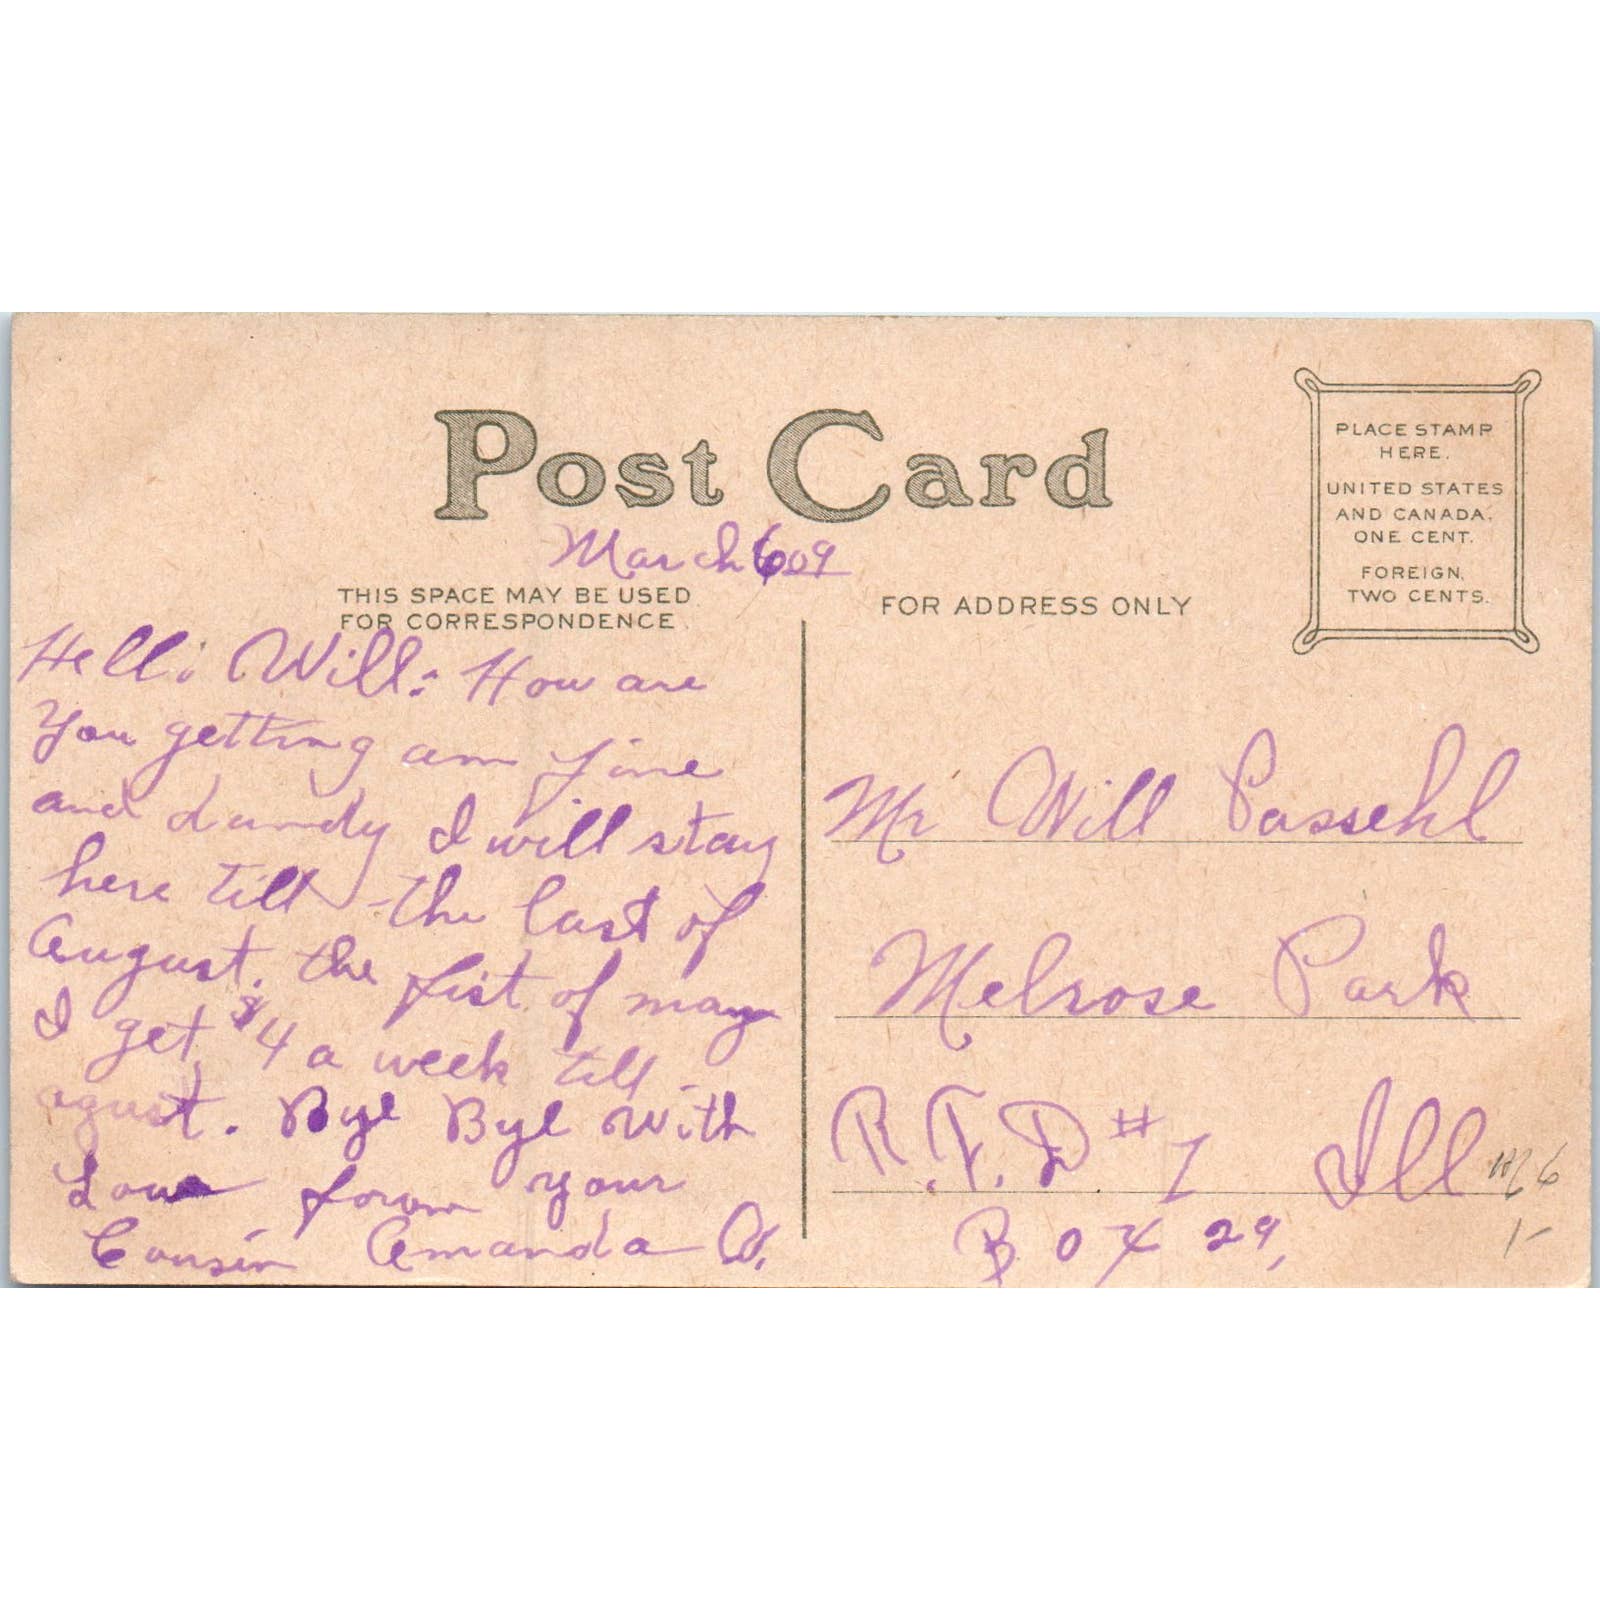 Post Card
March 6 09
THIS SPACE MAY BE USED
FOR CORRESPONDENCE.
FOR ADDRESS ONLY
PLACE STAMP
HERE.
UNITED STATES
AND CANADA,
ONE CENT.
FOREIGN,
TWO CENTS.
Hello Will: How are
You getting am fine
and dandy I will stay
here till the last of
August. the fist of may
I get $4 a week till
agust. Bye Bye With
Love form your
Cousin Amanda O.
Mr Will Passehl
Melrose Park
R.F.D #1 Ill
Box 29,